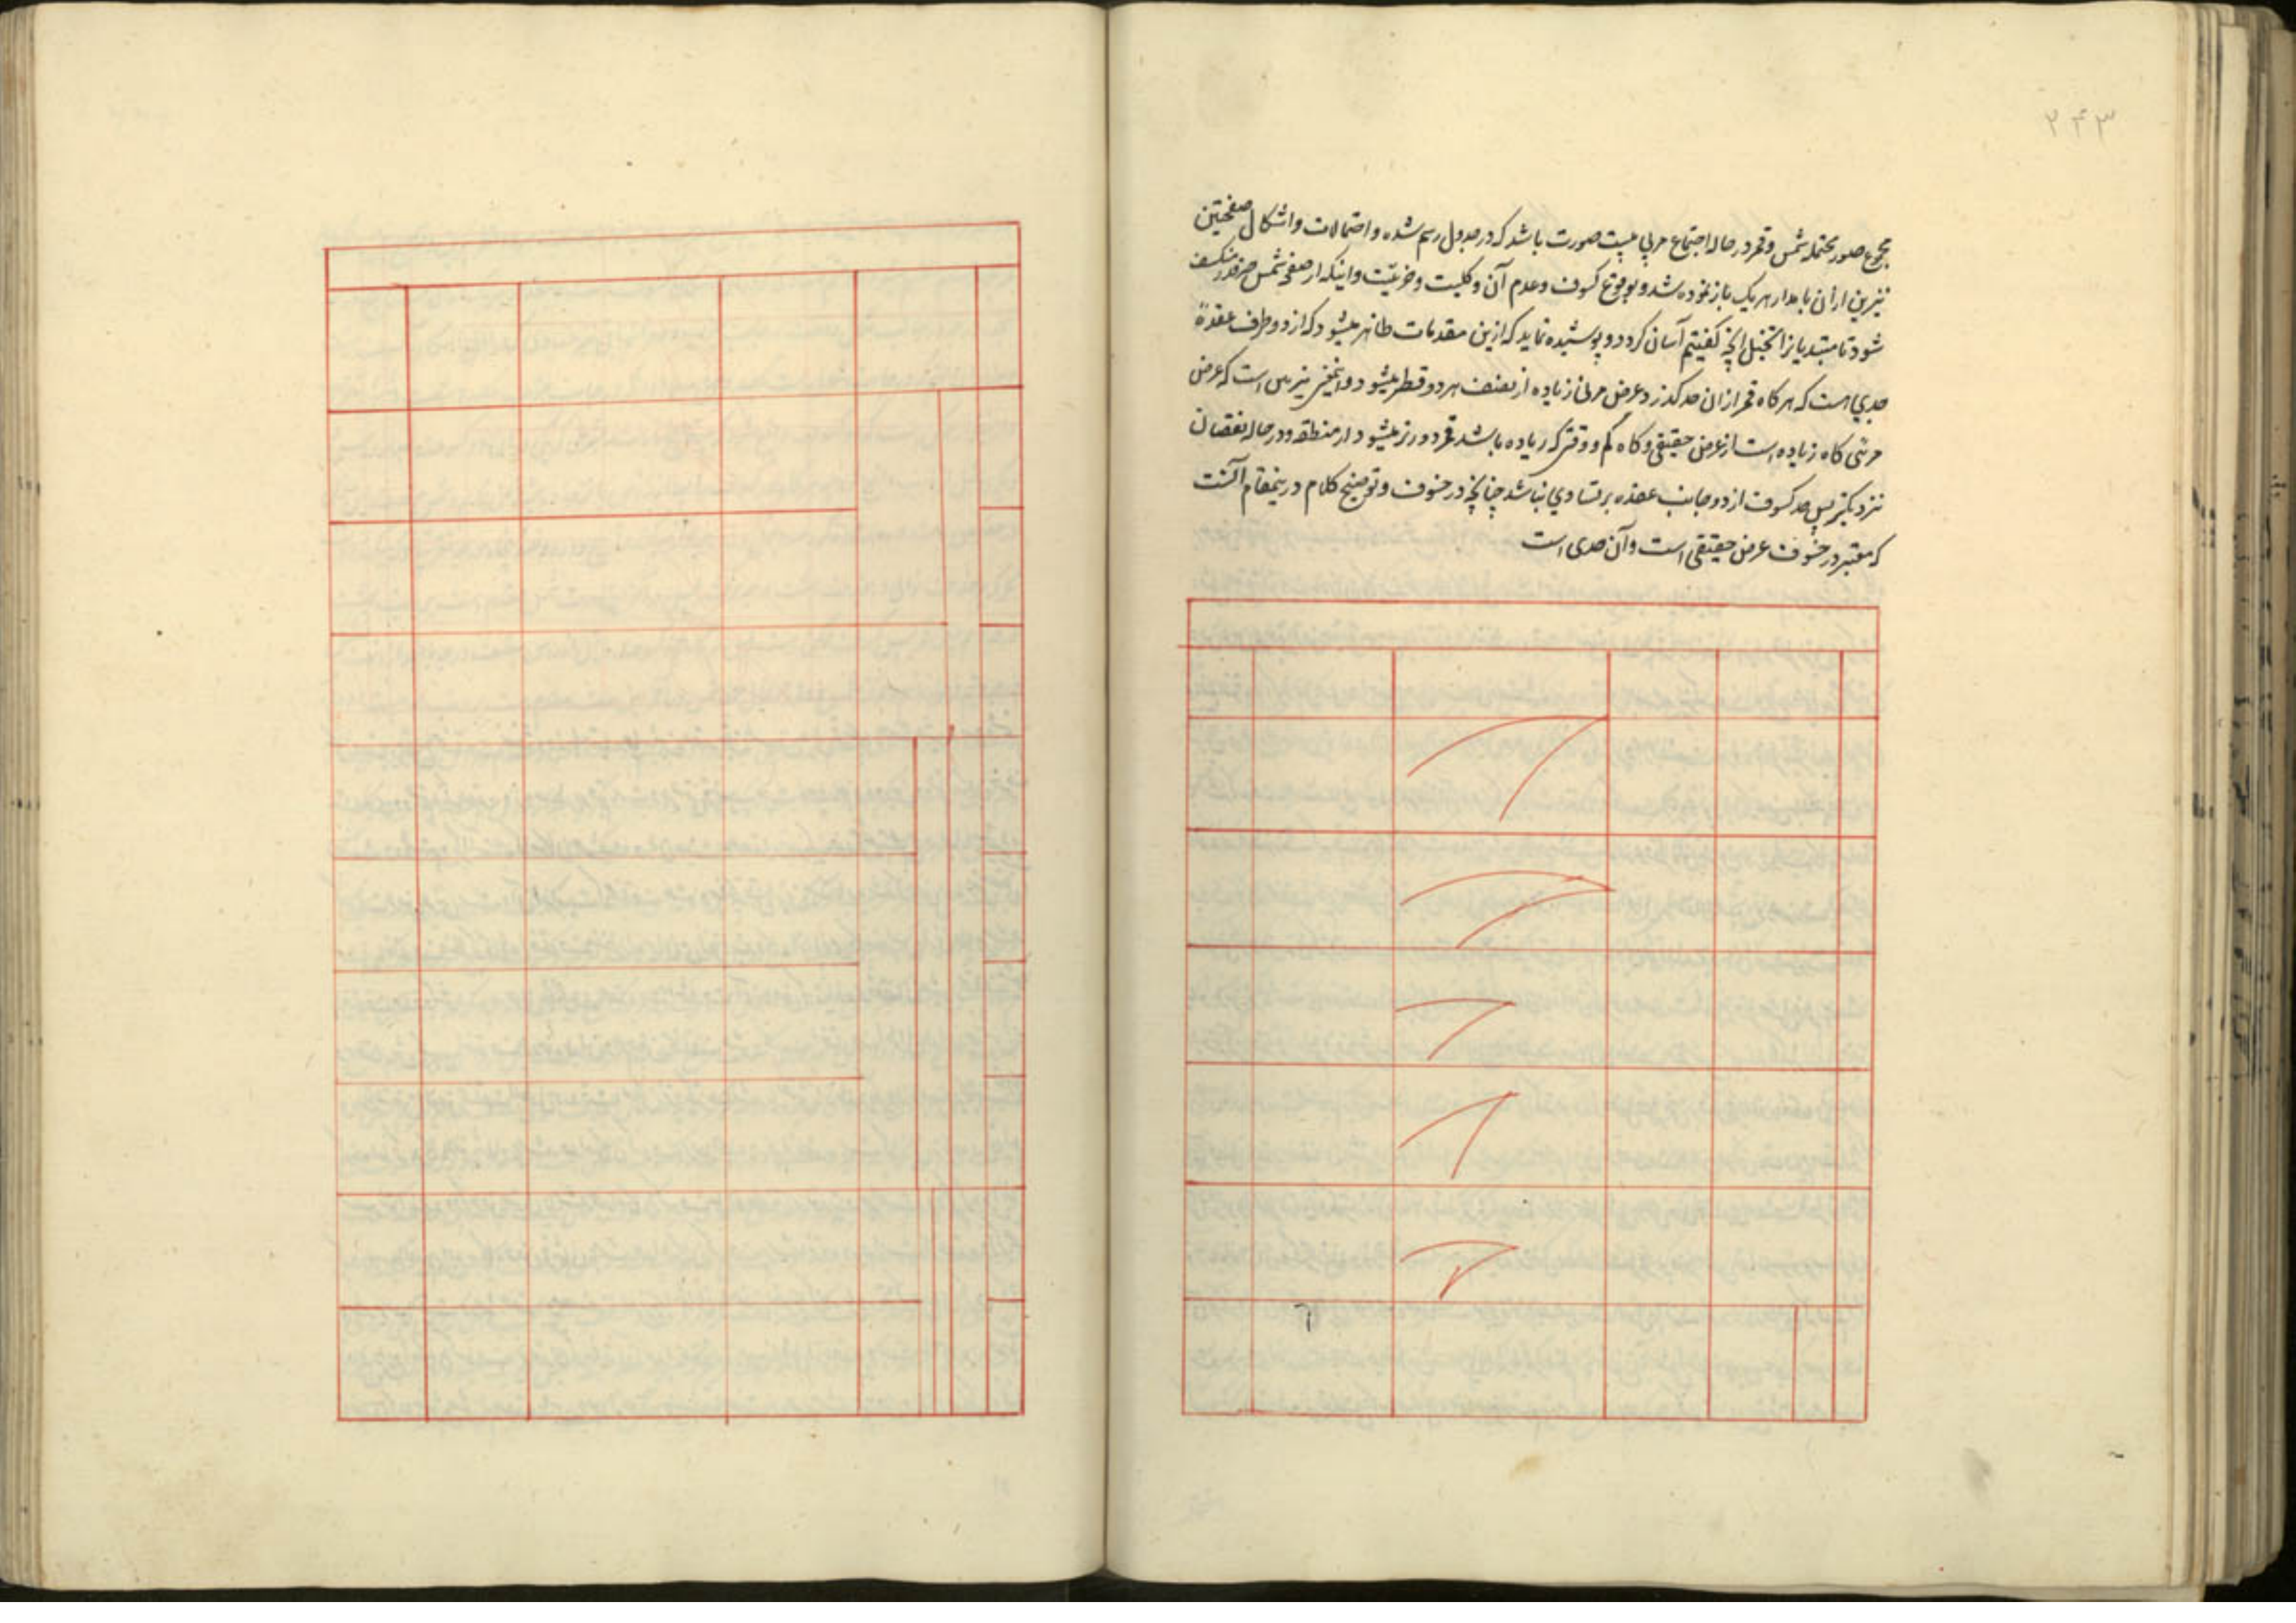 ۲۴۳
مجموع صور محتمله شمس و قمر در حال اجتماع مرئی بیست صورت باشد که در جدول رسم شده و احتمالات و اشکال صفحتین
نیرین از آن با مدار هر یک باز نموده شد و بوقوع کسوف و عدم آن و کلیت و جزئیت و اینکه از صفحه شمس چقدر منکسف
شود تا مبتدیانرا تخیل انچه کفتیم آسان کردد و پوشیده نماند که ازین مقدمات ظاهر میشود که از دو طرف عقده
حدی است که هر کاه قمر از ان حد کذرد عرض مرئی زیاده از نصف هر دو قطر میشود و این است که عرض
مرئی کاه زیاده است از عرض حقیقی و کاه کم و وقتی که زیاده باشد قمر دورتر میشود از منطقه و در حال نقصان
نزدیکتر پس حد کسوف از دو جانب عقده بر تساوی نباشد چنانچه در خسوف و توضیح کلام درینمقام آنست
که معتبر در خسوف عرض حقیقی است و آن حدی است